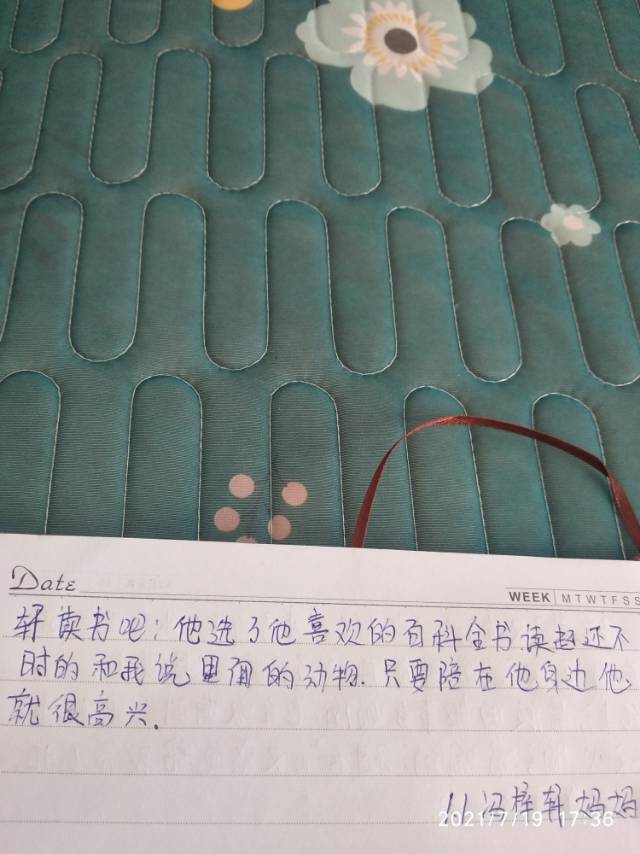 Date
WEEK M T W T F S S
轩读书吧:他选了他喜欢的百科全书读起还不
时的和我说里面的动物.只要陪在他身边他
就很高兴.
11冯梓轩妈妈
2021/7/19 17:36